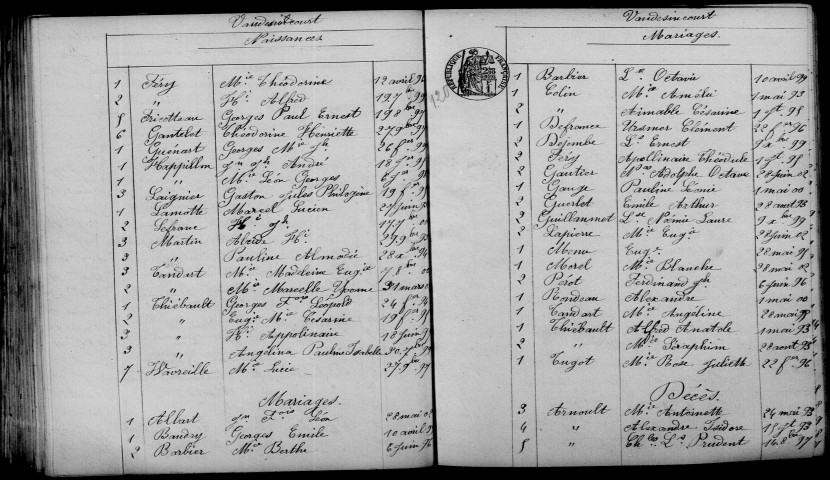 Vaudesincourt
Naissances
1 Féry Mie Théodorine 12 avril 94
2 " Hri Alfred 19 7bre 99
5 Fricotteau Georges Paul Ernest 19 8bre 97
6 Gantelot Théodorine Henriette 27 9bre 97
1 Guénart Georges Mie Jh 26 fer 99
1 Happillon Jn Jh André
1 " Mie Léon Georges
3 Laignier Gaston Jules Philogène
1 Lamotte Marcel Lucien 27 juin
2 Lefranc Hri Jh
3 Martin Alcide Hri
3 " Pauline Almodie 28 xbre 94
3 Tandart Mie Madeleine Eugie 7 8bre 00
2 " Mie Marcelle Yvonne 31 mars 02
1 Thiébault Georges Fois Léopold 24 fer 94
2 " Eugie Mie Césarine
3 " Hri Appolinaire 18 juin
3 " Angelina Pauline Isabelle 30 7bre
7 Wavreille Mie Lucie 27 9bre 97
Mariages.
1 Allart Jn Fois Léon 28 mai 02
1 Baudry Georges Emile 10 avril 99
2 Barbier Mie Berthe 6 juin 96
Vaudesincourt
Mariages.
RÉPUBLIQUE FRANÇAISE
120
1 Barbier Lse Octavie 10 avril 99
1 Colin Mie Amélie 1 mai 93
2 " Aimable Césarine 1 9bre 98
1 Defrance Ursmer Clément 22 fer 96
2 Dejembe Ls Ernest 9 xbre 99
2 Féry Apollinaire Théodule
2 Gautier Adolphe Octave 28 juin 02
1 Gouge Pauline Lénie 1 mai 00
2 Guerlot Emile Arthur 28 août 93
2 Guillaumot Lse Noémie Laure 9 xbre 99
2 Lapierre Mie Eugie 28 juin 02
1 Menu Eugie 28 mai 95
1 Morel Mie Blanche 28 mai 02
2 Pérot Ferdinand Jh 6 juin 96
1 Rondeau Alexandre 1 mai 00
1 Tandart Mie Angeline 28 mai 95
1 Thiébault Alfred Anatole 1 mai 93
2 " Mie Séraphine 28 août 93
1 Tugot Mie Rose Juliette 22 fer 96
Décès.
3 Arnoult Mie Antoinette 24 mai 93
4 " Alexandre Isidore 15 9bre 93
5 " Ch. Ls Prudent 14 8bre 97